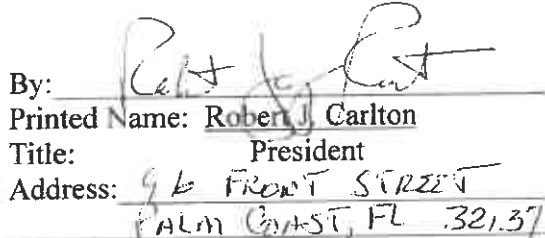 By:
Printed Name: Robert J. Carlton
Title: President
Address: 9 b FRONT STREET
PALM COAST, FL 32137